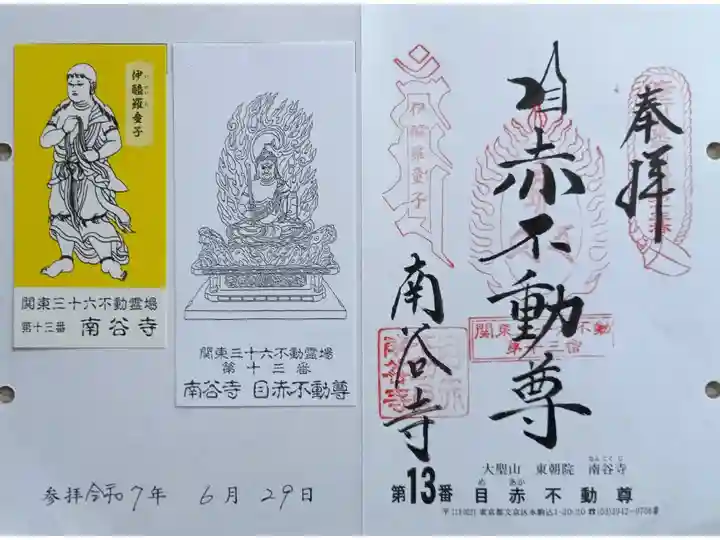 伊醯羅童子
関東三十六不動霊場
第十三番 南谷寺
関東三十六不動霊場
第十三番
南谷寺 目赤不動尊
参拝令和7年 6月 29日
奉拝
目赤不動尊
伊醯羅童子
南谷寺
大聖山 東朝院 南谷寺
なんこくじ
第13番 目赤不動尊
め あか
東京都文京区本駒込1-20-20 ☎(03)3942-0706